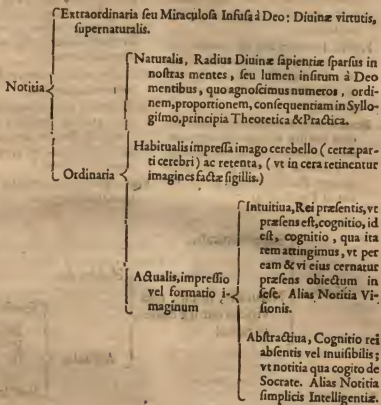 Extraordinaria ſeu Miraculoſa Infuſa à Deo: Diuinæ virtutis,
ſupernaturalis.
Notitia
Naturalis, Radius Diuinæ ſapientiæ ſparſus in
noſtras mentes, ſeu lumen inſitum à Deo
mentibus, quo agnoſcimus numeros, ordi-
nem, proportionem, conſequentiam in Syllo-
giſmo, principia Theoretica & Practica.
Ordinaria
Habitualis impreſſa imago cerebello (certæ par-
ti cerebri) ac retenta, (vt in cera retinentur
imagines factæ ſigillis.)
Actualis, impreſſio
vel formatio i-
maginum
Intuitiua, Rei præſentis, vt
præſens eſt, cognitio, id
eſt, cognitio, qua ita
rem attingimus, vt per
eam & vi eius cernatur
præſens obiectum in
ſeſe. Alias Notitia Vi-
ſionis.
Abſtractiua, Cognitio rei
abſentis vel inuiſibilis;
vt notitia qua cogito de
Socrate. Alias Notitia
ſimplicis Intelligentiæ.